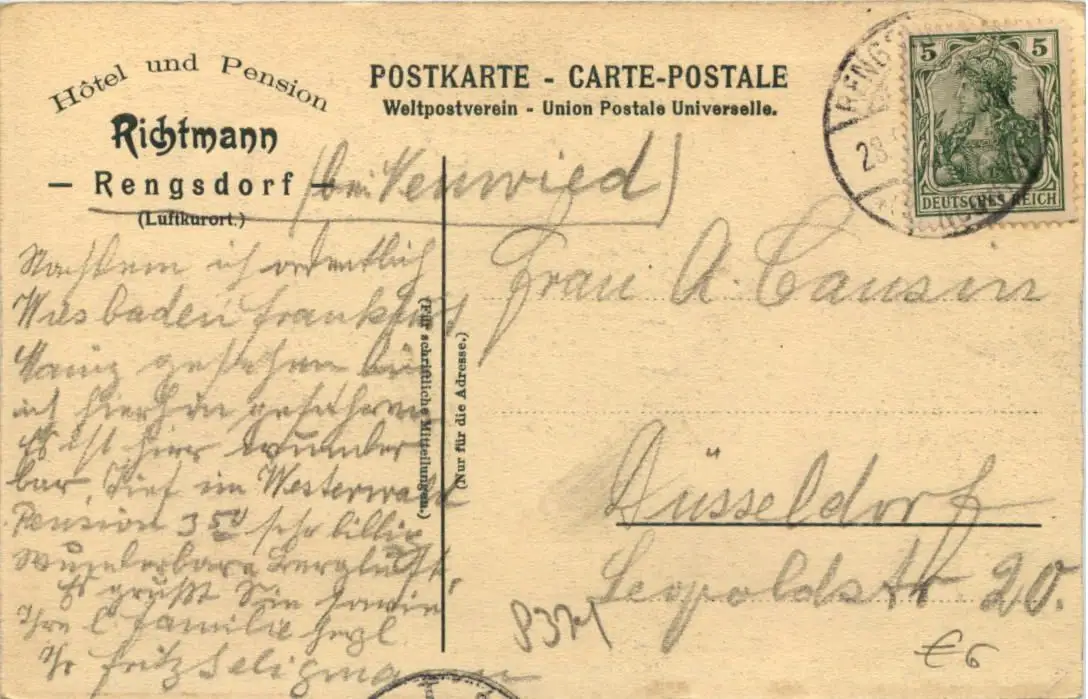 Hôtel und Pension
Richtmann
— Rengsdorf —
(bei Neuwied)
(Luftkurort.)
POSTKARTE - CARTE-POSTALE
Weltpostverein - Union Postale Universelle.
5 5
DEUTSCHES REICH
RENGS
Nachdem ich ordentlich
Wiesbaden Frankfurt
Mainz gesehen bin
ich hierhin gefahren
Es ist hier wunder
bar, Tief im Westerwald
Pension 3 50 sehr billig
Wunderbare Bergluft,
Es grüßt Sie sowie
Ihre l Familie herzl
Ihr Fritz Seligmann
(Für schriftliche Mitteilungen.)
(Nur für die Adresse.)
Frau A. Causin
Düsseldorf
Leopoldstr. 20.
€ 6